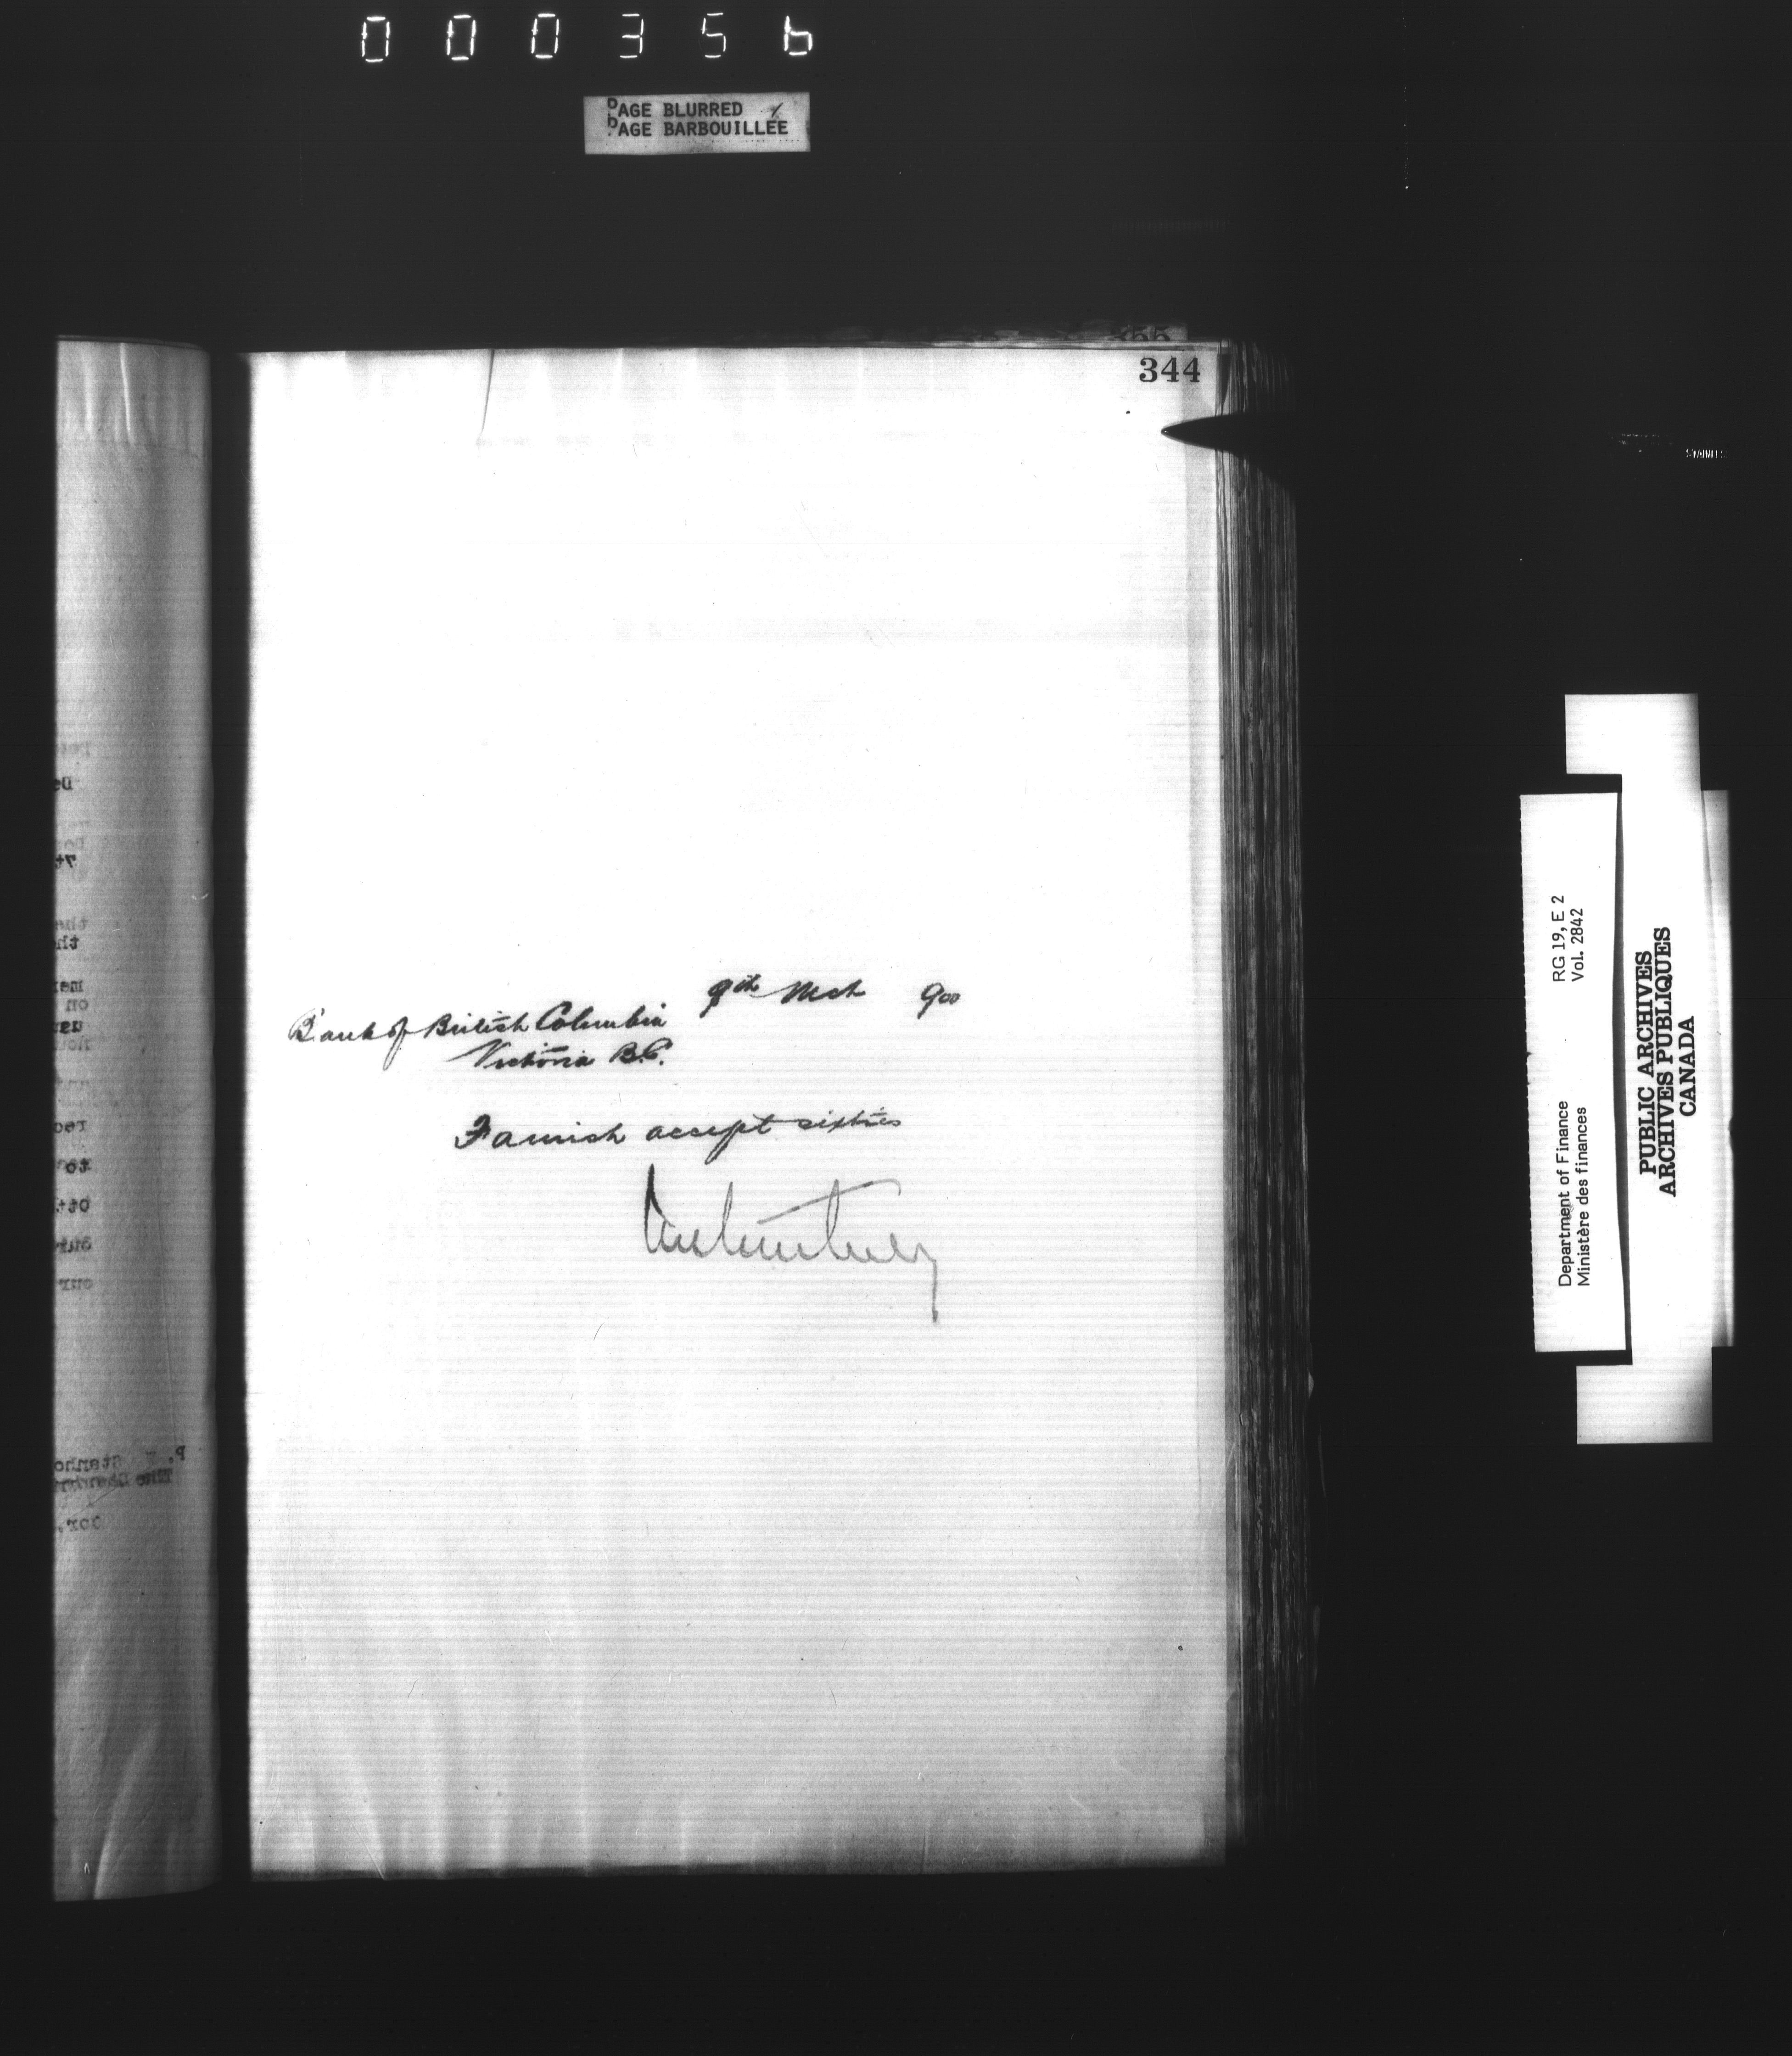 000356
PAGE BLURRED
PAGE BARBOUILLÉE
355
344
9th Mch 900
Bank of British Columbia
Victoria B.C.
Famish accept sixties
RG 19, E 2
Vol. 2842
Department of Finance
Ministère des finances
PUBLIC ARCHIVES
ARCHIVES PUBLIQUES
CANADA